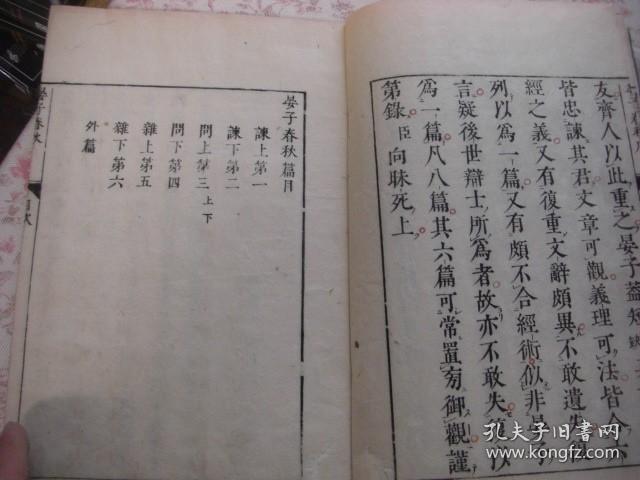 友齊人以此重之晏子蓋短
皆忠諫其君文章可觀義理可法皆合六
經之義又有復重文辭頗異不敢遺失
列以爲一篇又有頗不合經術似非晏子
言疑後世辯士所爲者故亦不敢失
爲一篇凡八篇其六篇可常置旁御觀謹
第錄臣向昧死上
晏子春秋篇目
諫上第一
諫下第二
問上第三上下
問下第四
雜上第五
雜下第六
外篇
晏子春秋
孔夫子旧书网
www.kongfz.com